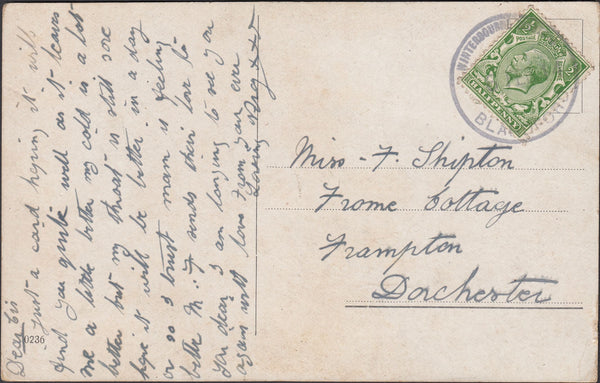 Dear Sis
Just a card hoping it will
find you quite well as it leaves
me a little better my cold is a lot
better but my throat is still sore
hope it will be better in a day
or so I trust mam is feeling
better M. F sends their love to
you dear I am longing to see you
again with love from your ever
loving
0236
WINTERBOURNE
HALFPENNY
Miss F. Shipton
Frome Cottage
Frampton
Dorchester